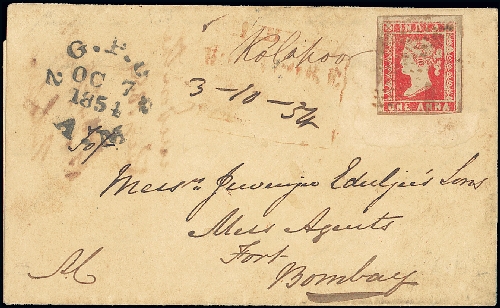 G.P.O
2 OC 7 D
1854
Kolapoor
3-10-54
INDIA
ONE ANNA
To/.
Mess.rs Jeewunjee Eduljee's Sons
Mess Agents
Fort
Bombay